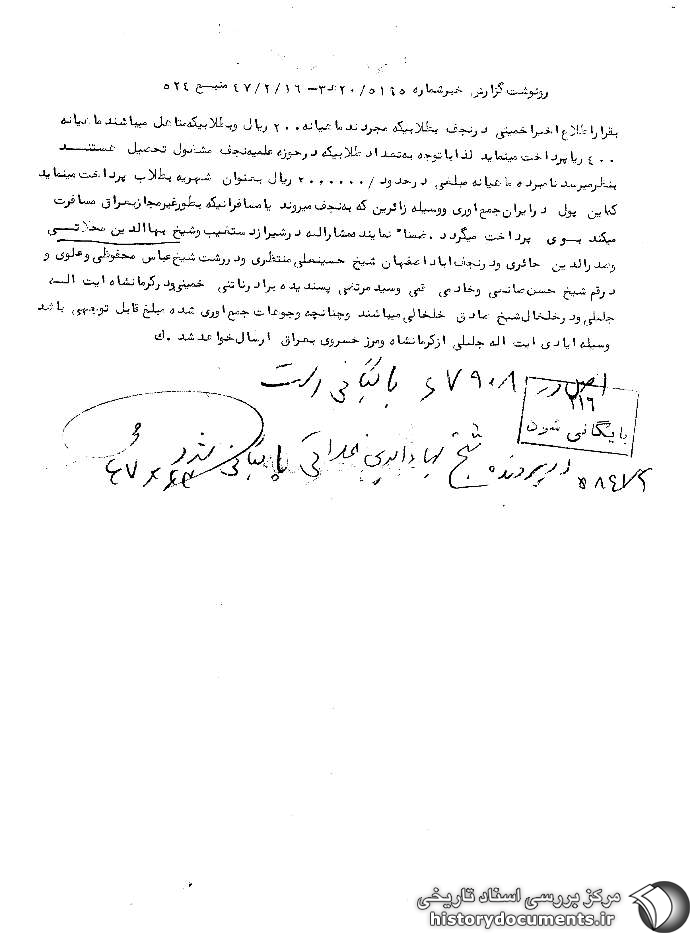 رونوشت گزارش خبر شماره ۵۱۶۵/۲۰ﻫ۳ – ۴۷/۲/۱۶ منبع ۵۲۴
بقرار اطلاع اخیرا خمینی در نجف بطلابیکه مجردند ماهیانه ۲۰۰ ریال و بطلابیکه متاهل میباشند ماهیانه
۴۰۰ ریا پرداخت مینماید لذا با توجه به تعداد طلابیکه در حوزه علمیه نجف مشغول تحصیل هستند
بنظر میرسد نامبرده ماهیانه مبلغی در حدود /۲۰۰۰۰۰۰ ریال بعنوان شهریه بطلاب پرداخت مینماید
که این پول در ایران جمع آوری و وسیله زائرین که به نجف میروند یا مسافرانیکه بطور غیر مجاز بعراق مسافرت
میکند بوی پرداخت میگردد . ضمنا" نماینده مشارالیه در شیراز دستغیب و شیخ بهاالدین محلاتی
وصدرالدین حائری و در نجف اباد اصفهان شیخ حسینعلی منتظری و در رشت شیخ عباس محفوظی و علوی و
در قم شیخ حسن صانعی و خادمی قمی و سید مرتضی پسندیده برادر ناتنی خمینی و در کرمانشاه ایت اله
جلیلی و در خلخال شیخ صادق خلخالی میباشند و چنانچه وجوهات جمع اوری شده مبلغ قابل توجهی باشد
وسیله ایادی ایت اله جلیلی از کرمانشاه و مرز خسروی بعراق ارسال خواهد شد . ك
اصل در ۶۷۹۰۸ بایگانی است
۲۱۶
بایگانی شود
در پرونده شیخ بهاءالدین محلاتی بایگانی شود
مرکز بررسی اسناد تاریخی
historydocuments.ir